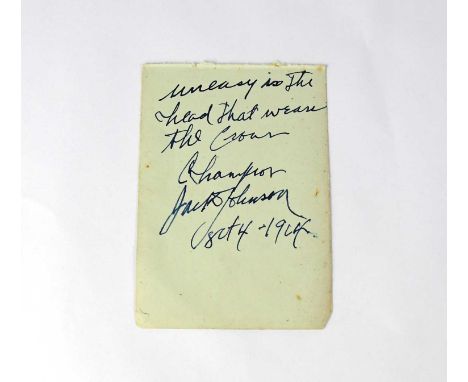 uneasy is The
head That wears
the Crown
Champion
Jack Johnson
Oct 4 - 1914